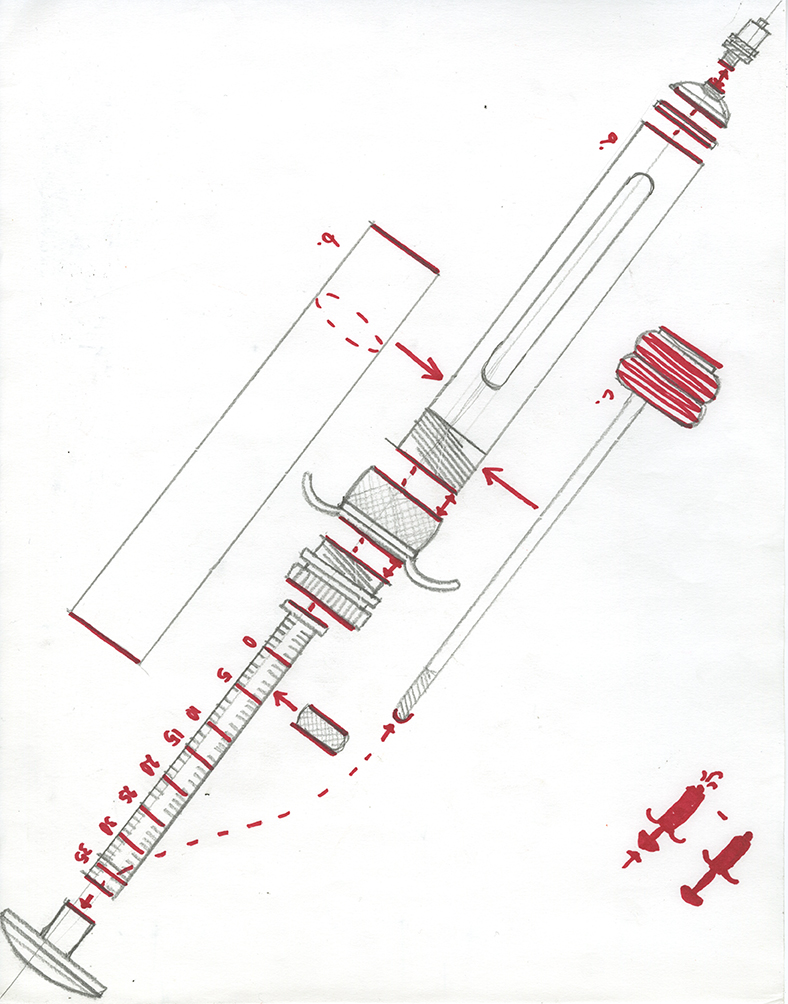 a.
b.
c.
0
5
10
15
20
25
30
35